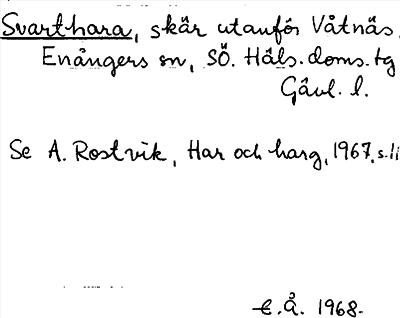 Svarthara, skär utanför Våtnäs.
Enångers sn, SÖ. Häls. doms. tg
Gävl. l.
Se A. Rostvik, Har och harg, 1967, s.
E.Å. 1968.